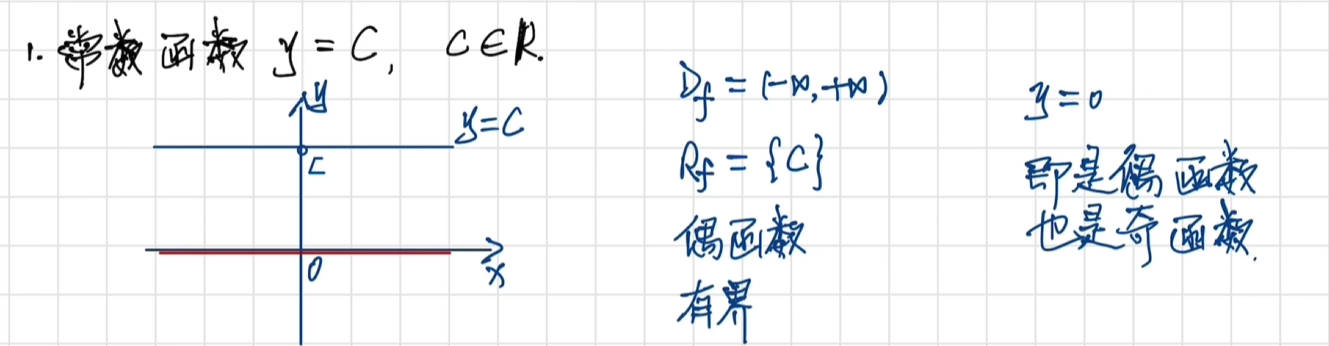 1. 常数函数 y = C, C∈R.
y
y=C
C
0
x
D_f = (-∞, +∞)
R_f = {C}
偶函数
有界
y=0
即是偶函数
也是奇函数.